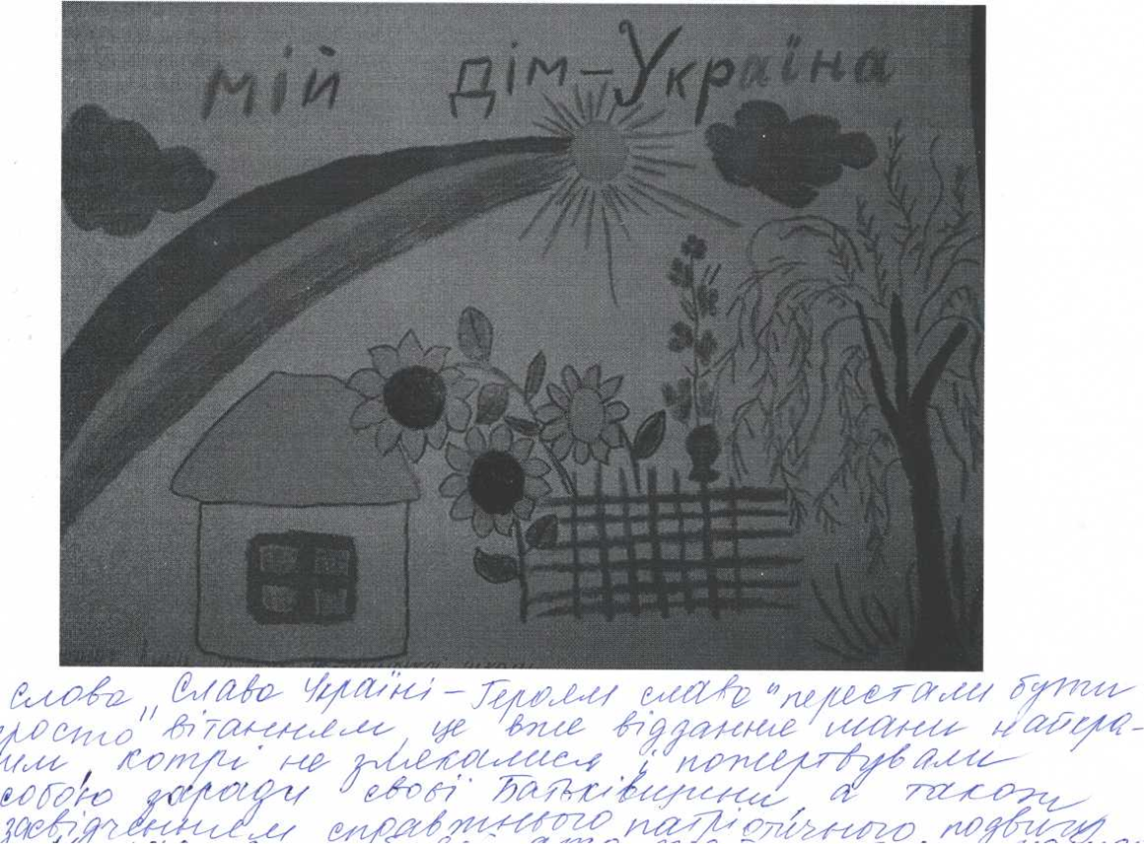 мій дім – Україна
слова „Слава Україні – Героям слава" перестали бути
просто вітанням, це вже віддання шани найкра-
щим, котрі не злякалися і пожертвували
собою заради своєї Батьківщини, а також
засвідченням справжнього патріотичного подвигу